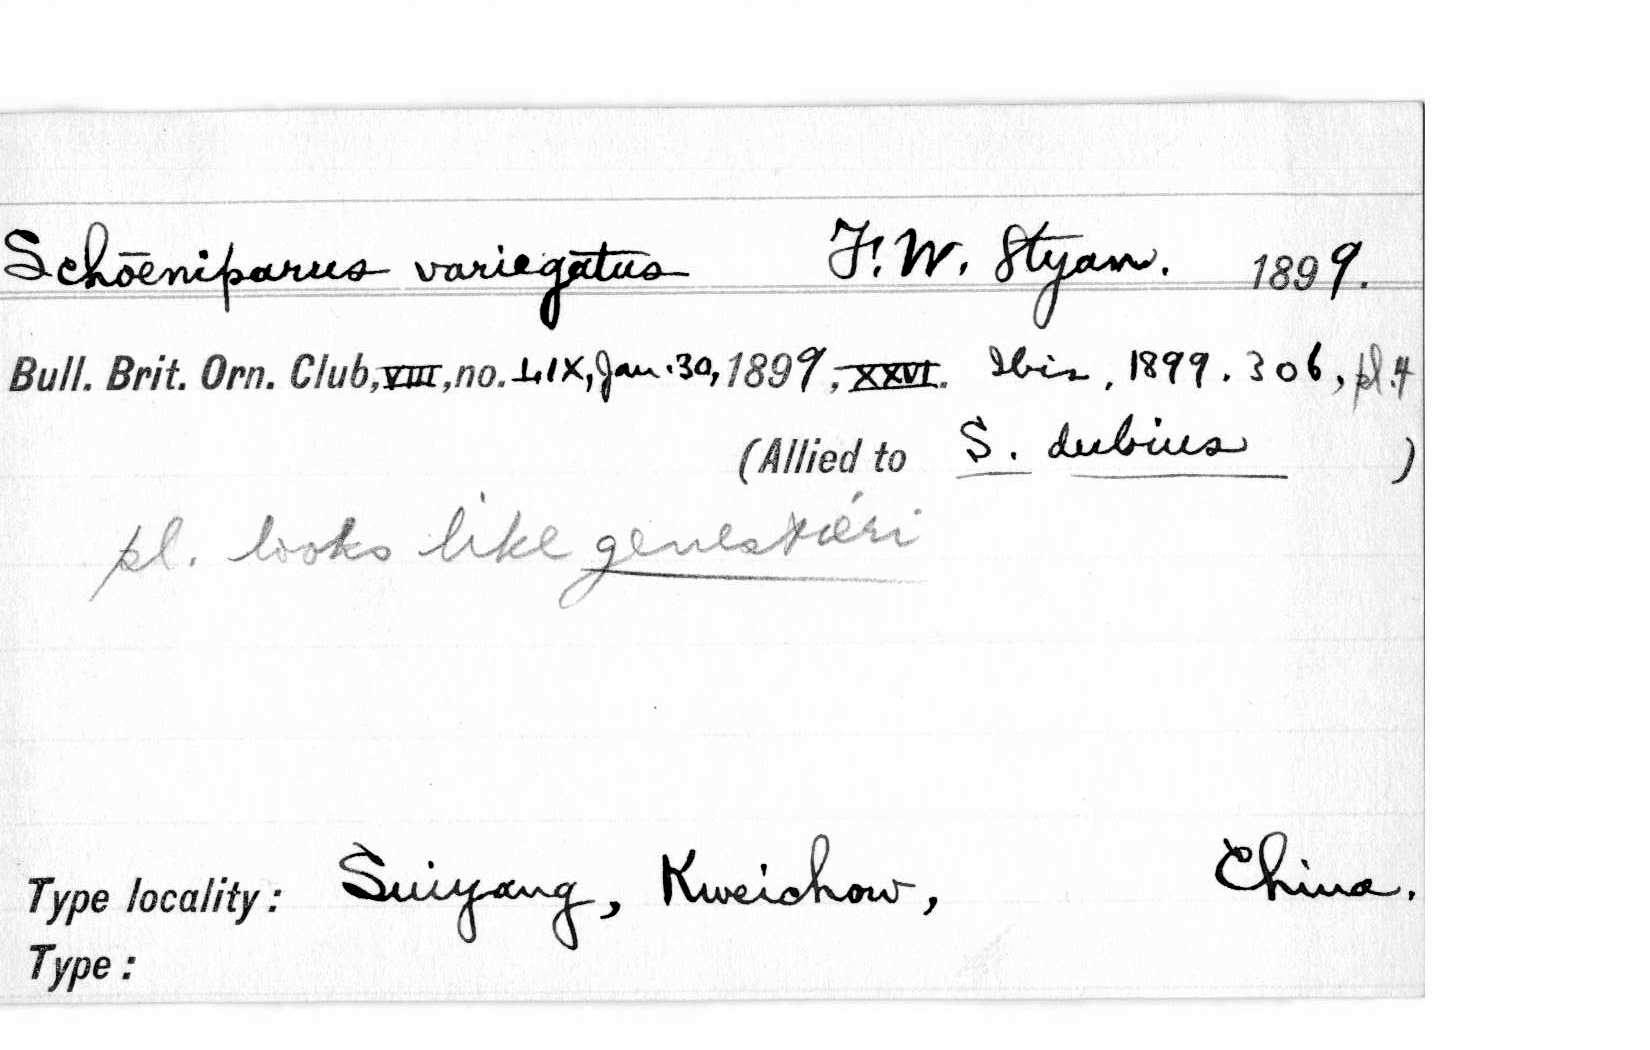 Schōeniparus variegatus F. W. Styan. 1899.
Bull. Brit. Orn. Club, VIII, no. LIX, Jan. 30, 1899, XXVI. Ibis, 1899. 306, pl. 4
(Allied to S. dubius )
pl. looks like genestieri
Type locality: Suiyang, Kweichow, China.
Type: